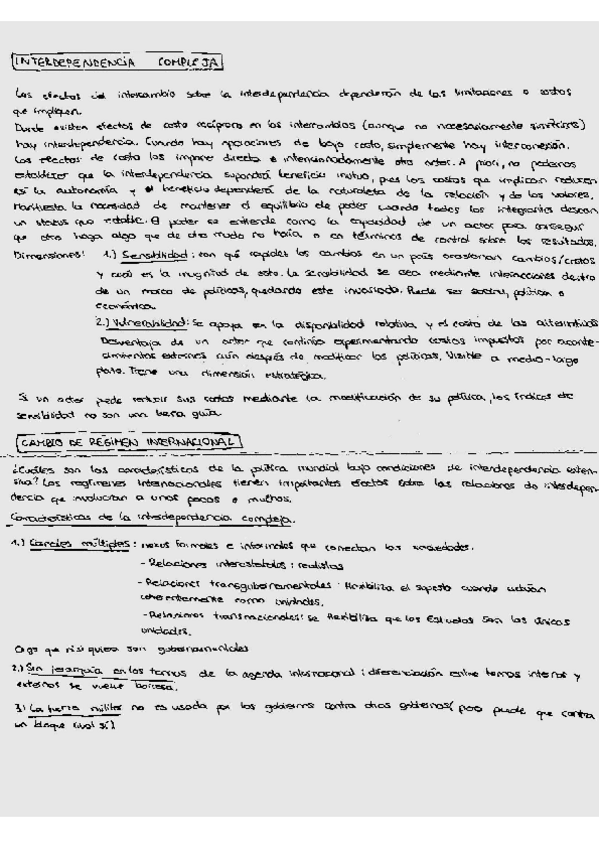 INTERDEPENDENCIA COMPLEJA
Los efectos del intercambio sobre la interdependencia dependerán de las limitaciones o costos
que impliquen.
Donde existen efectos de costo recíproco en los intercambios (aunque no necesariamente simétricos)
hay interdependencia. Cuando hay operaciones de bajo costo, simplemente hay interconexión.
Los efectos de costo los impone directa e intencionadamente otro actor. A priori, no podemos
establecer que la interdependencia supondrá beneficio mutuo, pues los costos que implican reducen
así la autonomía y el beneficio dependerá de la naturaleza de la relación y de los valores.
Manifiesta la necesidad de mantener el equilibrio de poder cuando todos los integrantes desean
un status quo estable. El poder se entiende como la capacidad de un actor para conseguir
que otro haga algo que de otro modo no haría o en términos de control sobre los resultados.
Dimensiones: 1.) Sensibilidad: con qué rapidez los cambios en un país ocasionan cambios/costos
y cuál es la magnitud de esto. La sensibilidad se crea mediante interacciones dentro
de un marco de políticas, quedando este invariado. Puede ser social, política o
económica.
2.) Vulnerabilidad: Se apoya en la disponibilidad relativa y el costo de las alternativas
Desventaja de un actor que continúa experimentando costos impuestos por aconte-
cimientos externos aún después de modificar las políticas. Visible a medio-largo
plazo. Tiene una dimensión estratégica.
Si un actor puede reducir sus costos mediante la modificación de su política, los índices de
sensibilidad no son una buena guía.
CAMBIO DE RÉGIMEN INTERNACIONAL
¿Cuáles son las características de la política mundial bajo condiciones de interdependencia exten-
siva? Los regímenes Internacionales tienen importantes efectos sobre las relaciones de interdepen-
dencia que involucran a unos pocos o muchos.
Características de la interdependencia compleja.
1.) Canales múltiples: nexos formales e informales que conectan las sociedades.
- Relaciones interestatales: realistas
- Relaciones transgubernamentales: flexibiliza el supuesto cuando actúan
coherentemente como unidades.
- Relaciones transnacionales: se flexibiliza que los Estados son las únicas
unidades.
que ni siquiera son gubernamentales
2.) Sin jerarquía en los temas de la agenda internacional: diferenciación entre temas internos y
externos se vuelve borrosa.
3.) La fuerza militar no es usada por los gobiernos contra otros gobiernos (pero puede que contra
un bloque rival sí)